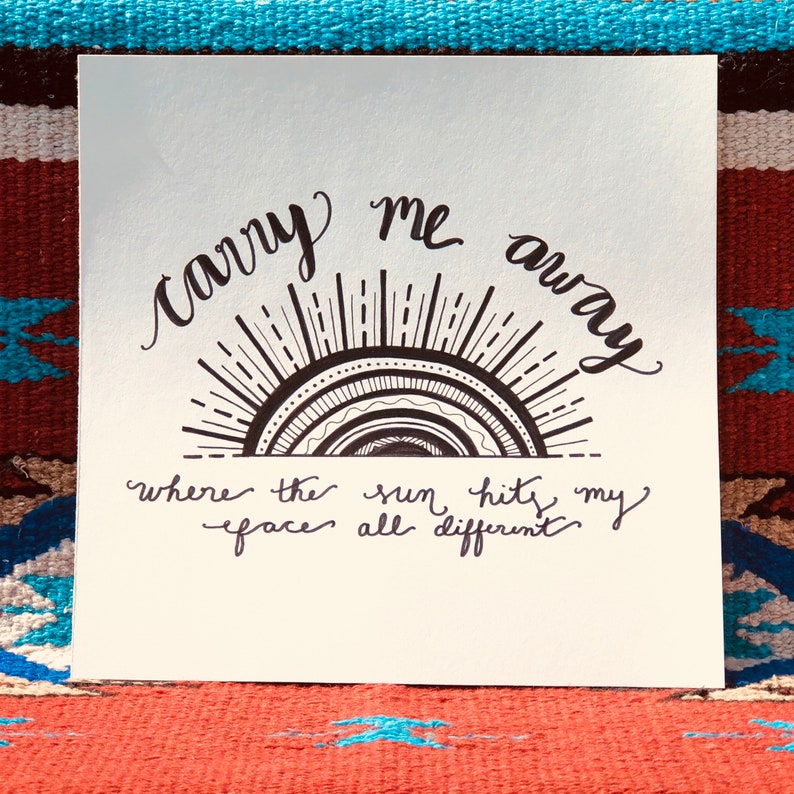 carry me away
where the sun hits my
face all different